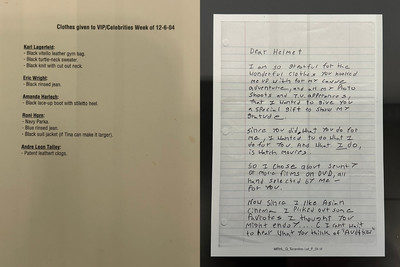 Clothes given to VIP/Celebrities Week of 12-6-04
Karl Lagerfeld:
- Black vitello leather gym bag.
- Black turtle neck sweater.
- Black knit with cut out neck.
Eric Wright:
- Black rinsed jean.
Amanda Harlech:
- Black lace-up boot with stiletto heel.
Roni Horn:
- Navy Parka.
- Blue rinsed jean.
- Black suit jacket (if Tina can make it larger).
Andre Leon Talley:
- Patent leather clogs.
Dear Helmet
I am so grateful for the
wonderful clothes you hooked
me up with for my
adventure, and all my Photo
Shoots and T.V. apperances,
That I wanted to give you
a special gift to show my
gratude
Since you did what you do for
me, I wanted to do what I
do for you. And what I do,
is watch movies.
So I chose about seventy
or more films on DVD, all
hand selected by me -
for you.
Now since I like Asian
cinema I picked out some
favorites I thought you
might enjoy... (I cant wait
to hear what you think of "AUdition"